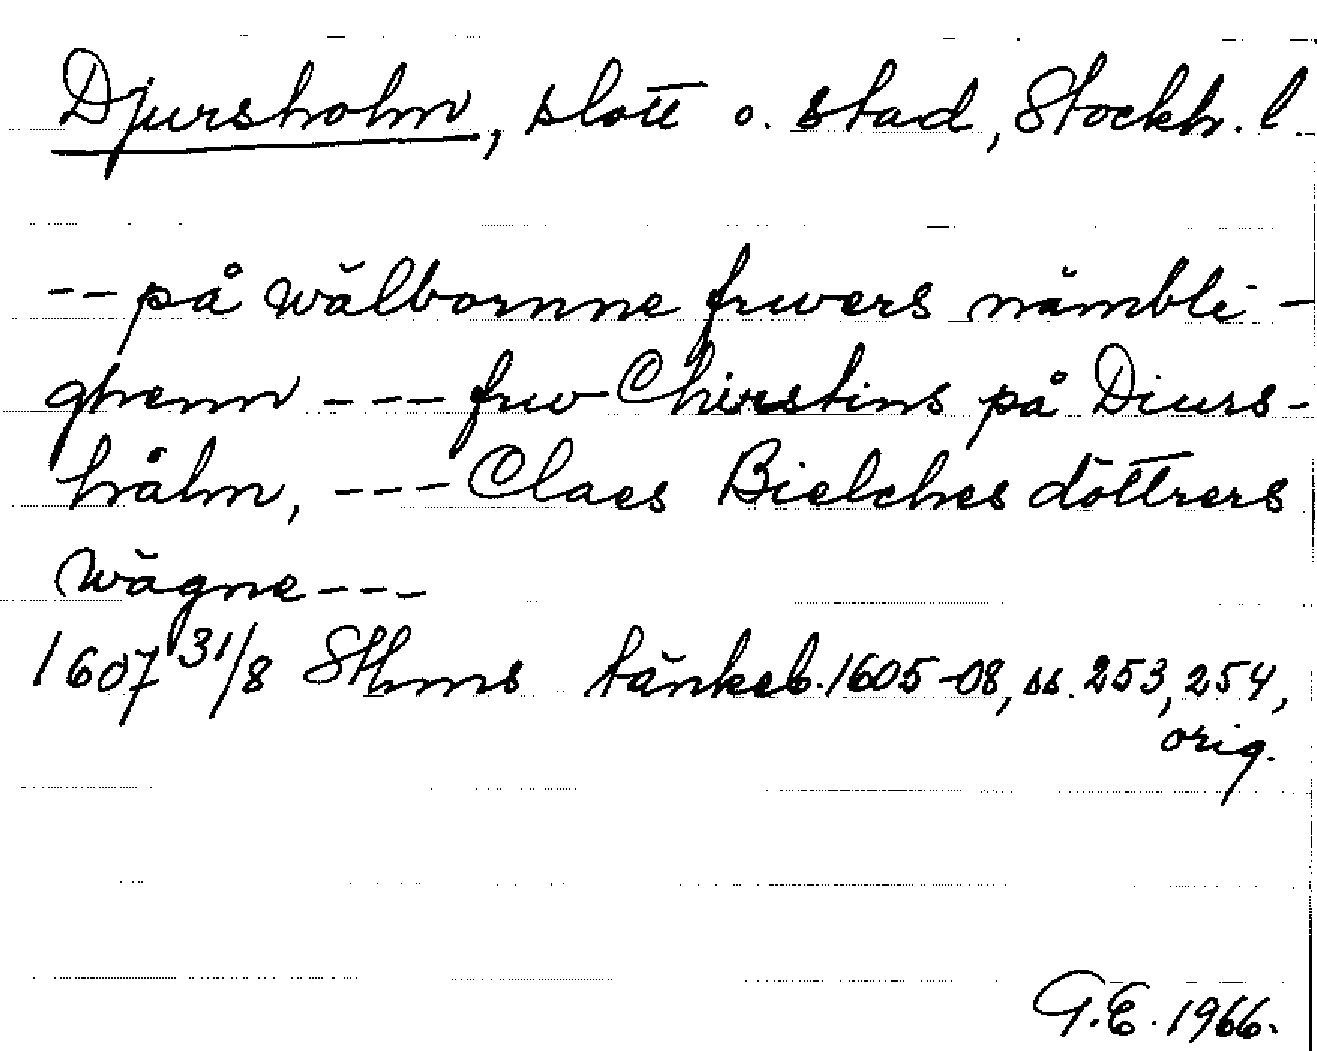 Djursholm, slott o. stad, Stockh. l.
-- på wälbornne fruers nämbli-
ghenn --- fruw Chirstins på Diurs-
håhn, --- Claes Bielches döttrers
wägne ---
1607 31/8 Sthms tänkeb. 1605-08, ss. 253, 254,
orig.
G.E. 1966.